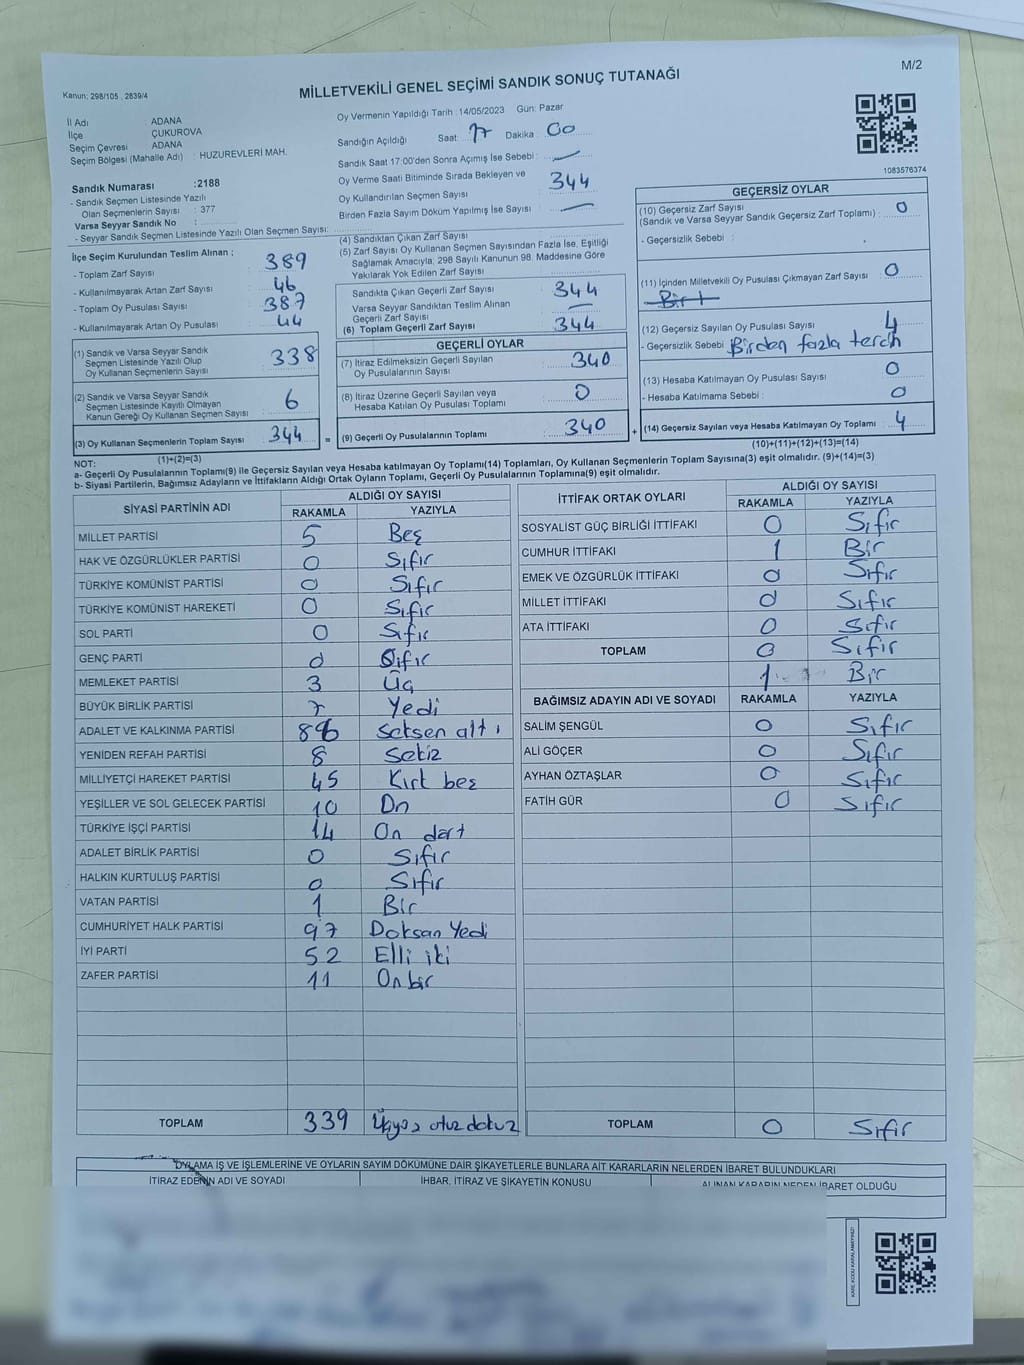 M/2
Kanun: 298/105 , 2839/4
MİLLETVEKİLİ GENEL SEÇİMİ SANDIK SONUÇ TUTANAĞI
İl Adı : ADANA
İlçe : ÇUKUROVA
Seçim Çevresi : ADANA
Seçim Bölgesi (Mahalle Adı) : HUZUREVLERİ MAH.
Sandık Numarası :2188
- Sandık Seçmen Listesinde Yazılı
Olan Seçmenlerin Sayısı : 377
Varsa Seyyar Sandık No :
- Seyyar Sandık Seçmen Listesinde Yazılı Olan Seçmen Sayısı:
Oy Vermenin Yapıldığı Tarih : 14/05/2023 Gün: Pazar
Sandığın Açıldığı Saat: 17 Dakika : 00
Sandık Saat 17:00'den Sonra Açımış İse Sebebi :
Oy Verme Saati Bitiminde Sırada Bekleyen ve
Oy Kullandırılan Seçmen Sayısı 344
Birden Fazla Sayım Döküm Yapılmış İse Sayısı :
1083576374
İlçe Seçim Kurulundan Teslim Alınan :
- Toplam Zarf Sayısı 389
- Kullanılmayarak Artan Zarf Sayısı 46
- Toplam Oy Pusulası Sayısı 387
- Kullanılmayarak Artan Oy Pusulası 44
(1) Sandık ve Varsa Seyyar Sandık
Seçmen Listesinde Yazılı Olup
Oy Kullanan Seçmenlerin Sayısı 338
(2) Sandık ve Varsa Seyyar Sandık
Seçmen Listesinde Kayıtlı Olmayan
Kanun Gereği Oy Kullanan Seçmen Sayısı 6
(3) Oy Kullanan Seçmenlerin Toplam Sayısı 344 =
(1)+(2)=(3)
(4) Sandıktan Çıkan Zarf Sayısı
(5) Zarf Sayısı Oy Kullanan Seçmen Sayısından Fazla İse, Eşitliği
Sağlamak Amacıyla, 298 Sayılı Kanunun 98. Maddesine Göre
Yakılarak Yok Edilen Zarf Sayısı
Sandıkta Çıkan Geçerli Zarf Sayısı 344
Varsa Seyyar Sandıktan Teslim Alınan
Geçerli Zarf Sayısı
(6) Toplam Geçerli Zarf Sayısı 344
GEÇERLİ OYLAR
(7) İtiraz Edilmeksizin Geçerli Sayılan
Oy Pusulalarının Sayısı 340
(8) İtiraz Üzerine Geçerli Sayılan veya
Hesaba Katılan Oy Pusulası Toplamı 0
(9) Geçerli Oy Pusulalarının Toplamı 340 +
GEÇERSİZ OYLAR
(10) Geçersiz Zarf Sayısı
(Sandık ve Varsa Seyyar Sandık Geçersiz Zarf Toplamı) : 0
- Geçersizlik Sebebi :
(11) İçinden Milletvekili Oy Pusulası Çıkmayan Zarf Sayısı 0
(12) Geçersiz Sayılan Oy Pusulası Sayısı 4
- Geçersizlik Sebebi Birden fazla tercih
(13) Hesaba Katılmayan Oy Pusulası Sayısı 0
- Hesaba Katılmama Sebebi : 0
(14) Geçersiz Sayılan veya Hesaba Katılmayan Oy Toplamı 4
(10)+(11)+(12)+(13)=(14)
NOT:
a- Geçerli Oy Pusulalarının Toplamı(9) ile Geçersiz Sayılan veya Hesaba katılmayan Oy Toplamı(14) Toplamları, Oy Kullanan Seçmenlerin Toplam Sayısına(3) eşit olmalıdır. (9)+(14)=(3)
b- Siyasi Partilerin, Bağımsız Adayların ve İttifakların Aldığı Ortak Oyların Toplamı, Geçerli Oy Pusulalarının Toplamına(9) eşit olmalıdır.
SİYASİ PARTİNİN ADI ALDIĞI OY SAYISI
RAKAMLA YAZIYLA
MİLLET PARTİSİ 5 Beş
HAK VE ÖZGÜRLÜKLER PARTİSİ 0 Sıfır
TÜRKİYE KOMÜNİST PARTİSİ 0 Sıfır
TÜRKİYE KOMÜNİST HAREKETİ 0 Sıfır
SOL PARTİ 0 Sıfır
GENÇ PARTİ 0 Sıfır
MEMLEKET PARTİSİ 3 Üç
BÜYÜK BİRLİK PARTİSİ 7 Yedi
ADALET VE KALKINMA PARTİSİ 86 Seksen altı
YENİDEN REFAH PARTİSİ 8 Sekiz
MİLLİYETÇİ HAREKET PARTİSİ 45 Kırk beş
YEŞİLLER VE SOL GELECEK PARTİSİ 10 On
TÜRKİYE İŞÇİ PARTİSİ 14 On dört
ADALET BİRLİK PARTİSİ 0 Sıfır
HALKIN KURTULUŞ PARTİSİ 0 Sıfır
VATAN PARTİSİ 1 Bir
CUMHURİYET HALK PARTİSİ 97 Doksan Yedi
İYİ PARTİ 52 Elli iki
ZAFER PARTİSİ 11 On bir
TOPLAM 339 Üçyüz otuz dokuz
İTTİFAK ORTAK OYLARI ALDIĞI OY SAYISI
RAKAMLA YAZIYLA
SOSYALİST GÜÇ BİRLİĞİ İTTİFAKI 0 Sıfır
CUMHUR İTTİFAKI 1 Bir
EMEK VE ÖZGÜRLÜK İTTİFAKI 0 Sıfır
MİLLET İTTİFAKI 0 Sıfır
ATA İTTİFAKI 0 Sıfır
TOPLAM 0 Sıfır
1 Bir
BAĞIMSIZ ADAYIN ADI VE SOYADI RAKAMLA YAZIYLA
SALİM ŞENGÜL 0 Sıfır
ALİ GÖÇER 0 Sıfır
AYHAN ÖZTAŞLAR 0 Sıfır
FATİH GÜR 0 Sıfır
TOPLAM 0 Sıfır
OYLAMA İŞ VE İŞLEMLERİNE VE OYLARIN SAYIM DÖKÜMÜNE DAİR ŞİKAYETLERLE BUNLARA AİT KARARLARIN NELERDEN İBARET BULUNDUKLARI
İTİRAZ EDENİN ADI VE SOYADI İHBAR, İTİRAZ VE ŞİKAYETİN KONUSU ALINAN KARARIN NEDEN İBARET OLDUĞU
KARE KODU KARALAMAYINIZ!